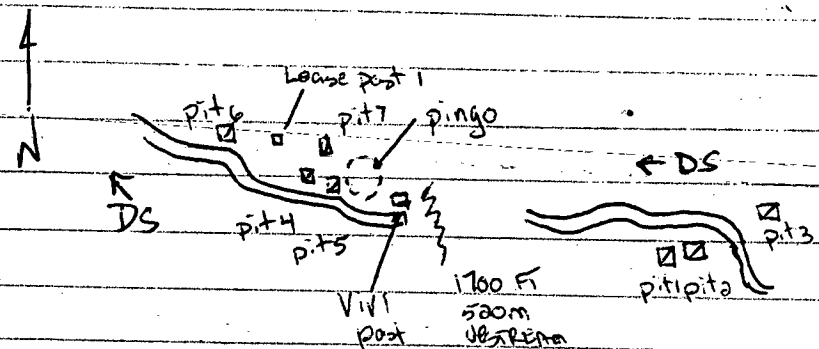 Lease post 1
pit6
pit7
pingo
N
← DS
DS
pit4
pit5
pit3
pit1 pit2
VIVI
post
1700 FT
520m
UPSTREAM